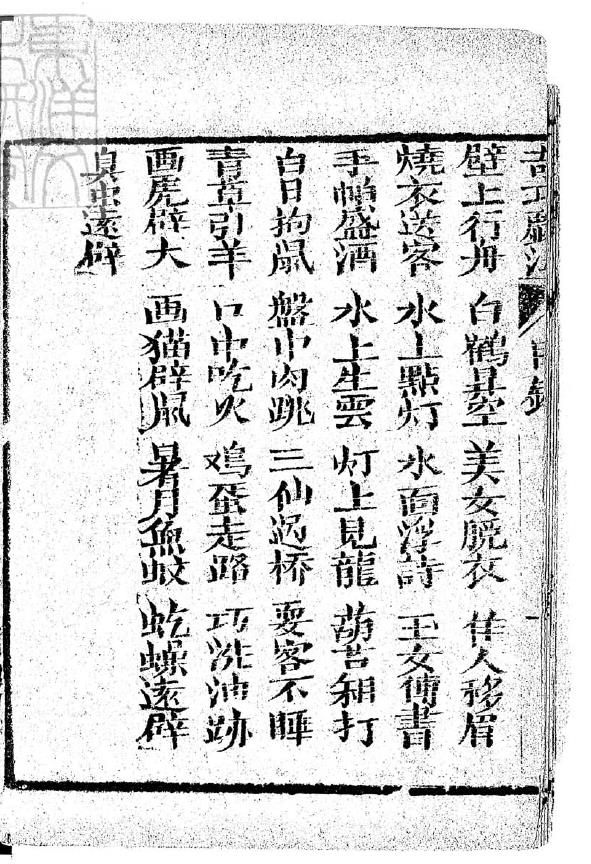 巧戲法 目錄
壁上行舟 白鶴昇空 美女脫衣 佳人移眉
燒衣送客 水上點灯 水面浮詩 玉女傳書
手帕盛酒 水上生雲 灯上見龍 葫芦相打
白日拘鼠 盤中肉跳 三仙過桥 耍客不睡
青草引羊 口中吃火 鸡蛋走路 巧洗油跡
画虎辟大 画猫辟鼠 暑月魚蚊 虼螺遠辟
臭虫遠辟